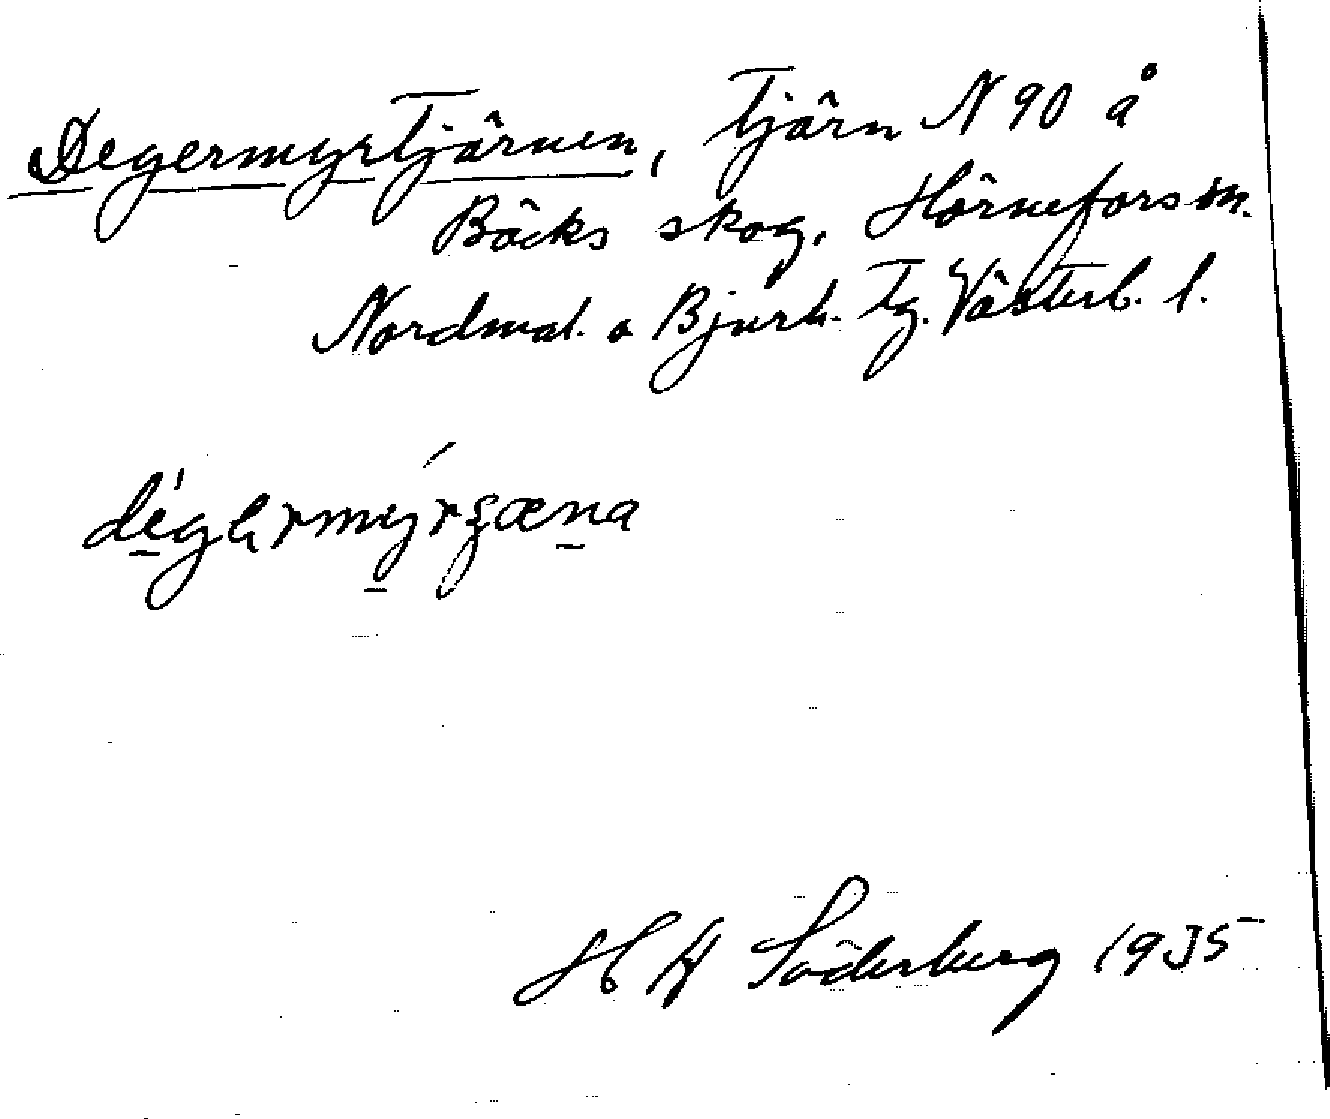 Degermyrtjärnen, tjärn N 90 å
Böcks skog, Hörnefors sn.
Nordmal. o Bjurh. tg. Västerb. l.
H Söderberg 1935